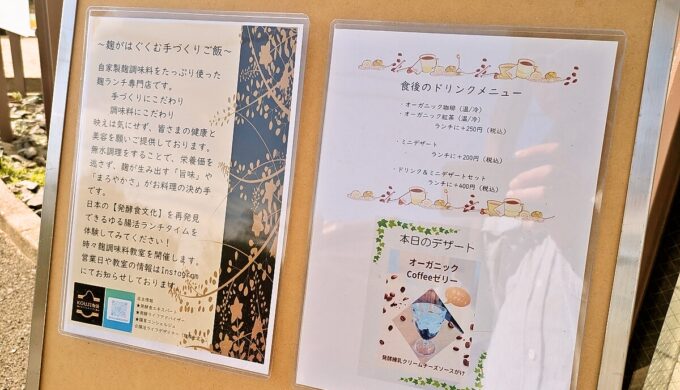 ～麹がはぐくむ手づくりご飯～
自家製麹調味料をたっぷり使った
麹ランチ専門店です。
手づくりにこだわり
調味料にこだわり
映えは気にせず、皆さまの健康と
美容を願いご提供しております。
無水調理をすることで、栄養価を
逃さず、麹が生み出す「旨味」や
「まろやかさ」がお料理の決め手
です。
日本の【発酵食文化】を再発見
できるゆる腸活ランチタイムを
体験してみてください！
時々麹調味料教室を開催します。
営業日や教室の情報はInstagram
にてお知らせしております。
食後のドリンクメニュー
・オーガニック珈琲（温/冷）
・オーガニック紅茶（温/冷）
ランチに＋250円（税込）
・ミニデザート
ランチに＋200円（税込）
・ドリンク＆ミニデザートセット
ランチに＋400円（税込）
本日のデザート
オーガニック
Coffeeゼリー
発酵練乳クリームチーズソースがけ